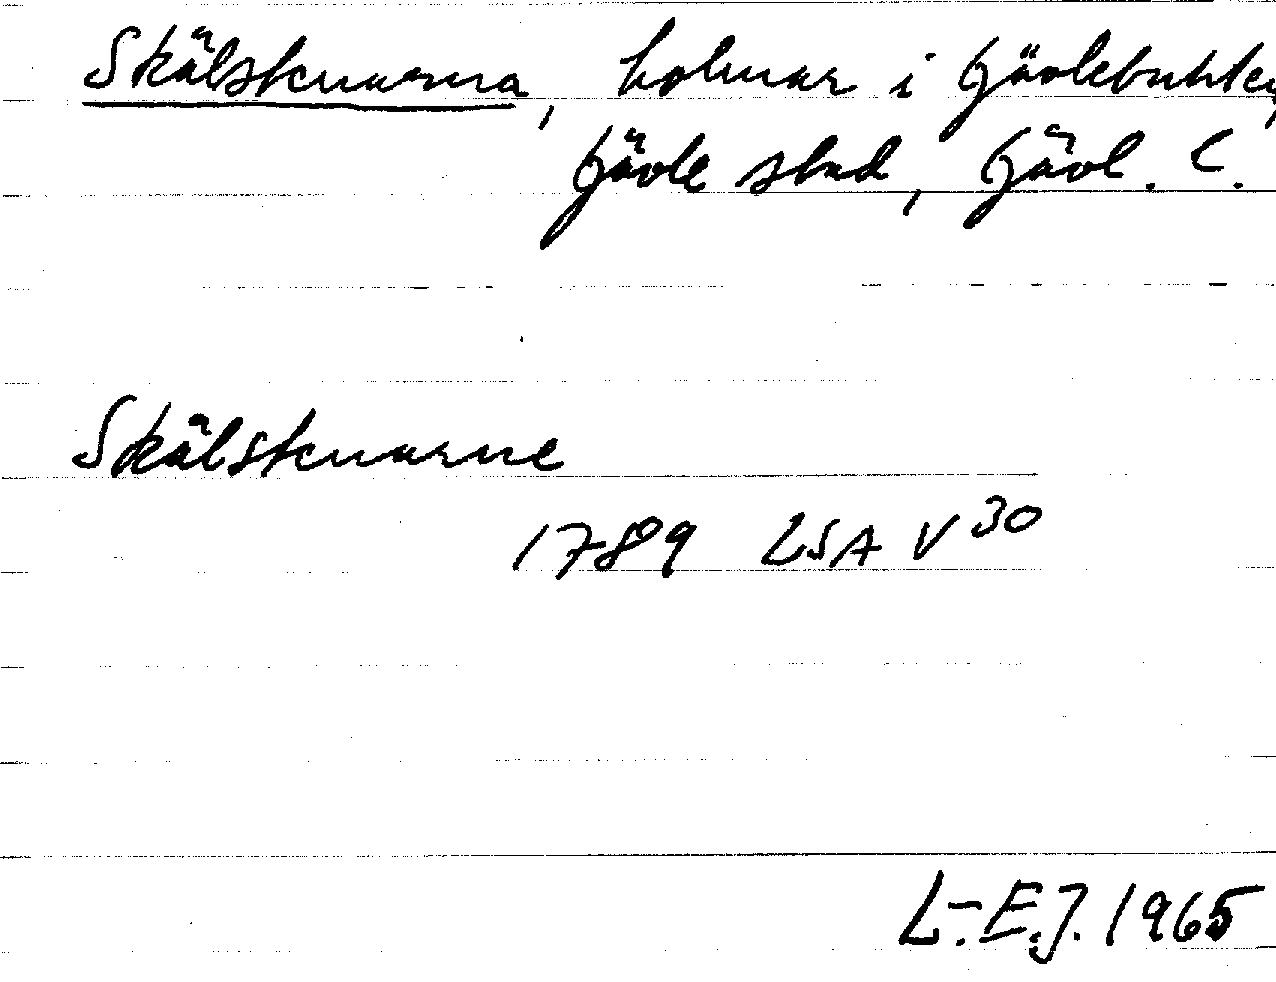 Skälstenarna, holmar i Gävlebukten,
Gävle stad, Gävl. L.
Skälstenarne
1789 LSA V 30
L.-E.J. 1965